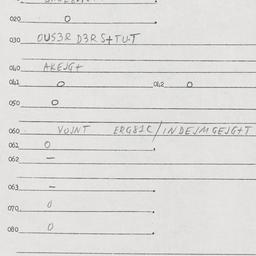 020 0
030 OUS3R D3R S+TU-T
040 AKEJG+
041 0 042 0
050 0
060 VOJNT ERG81C/INDEJMGEJG+T
061 0
062 —
063 —
070 0
080 0